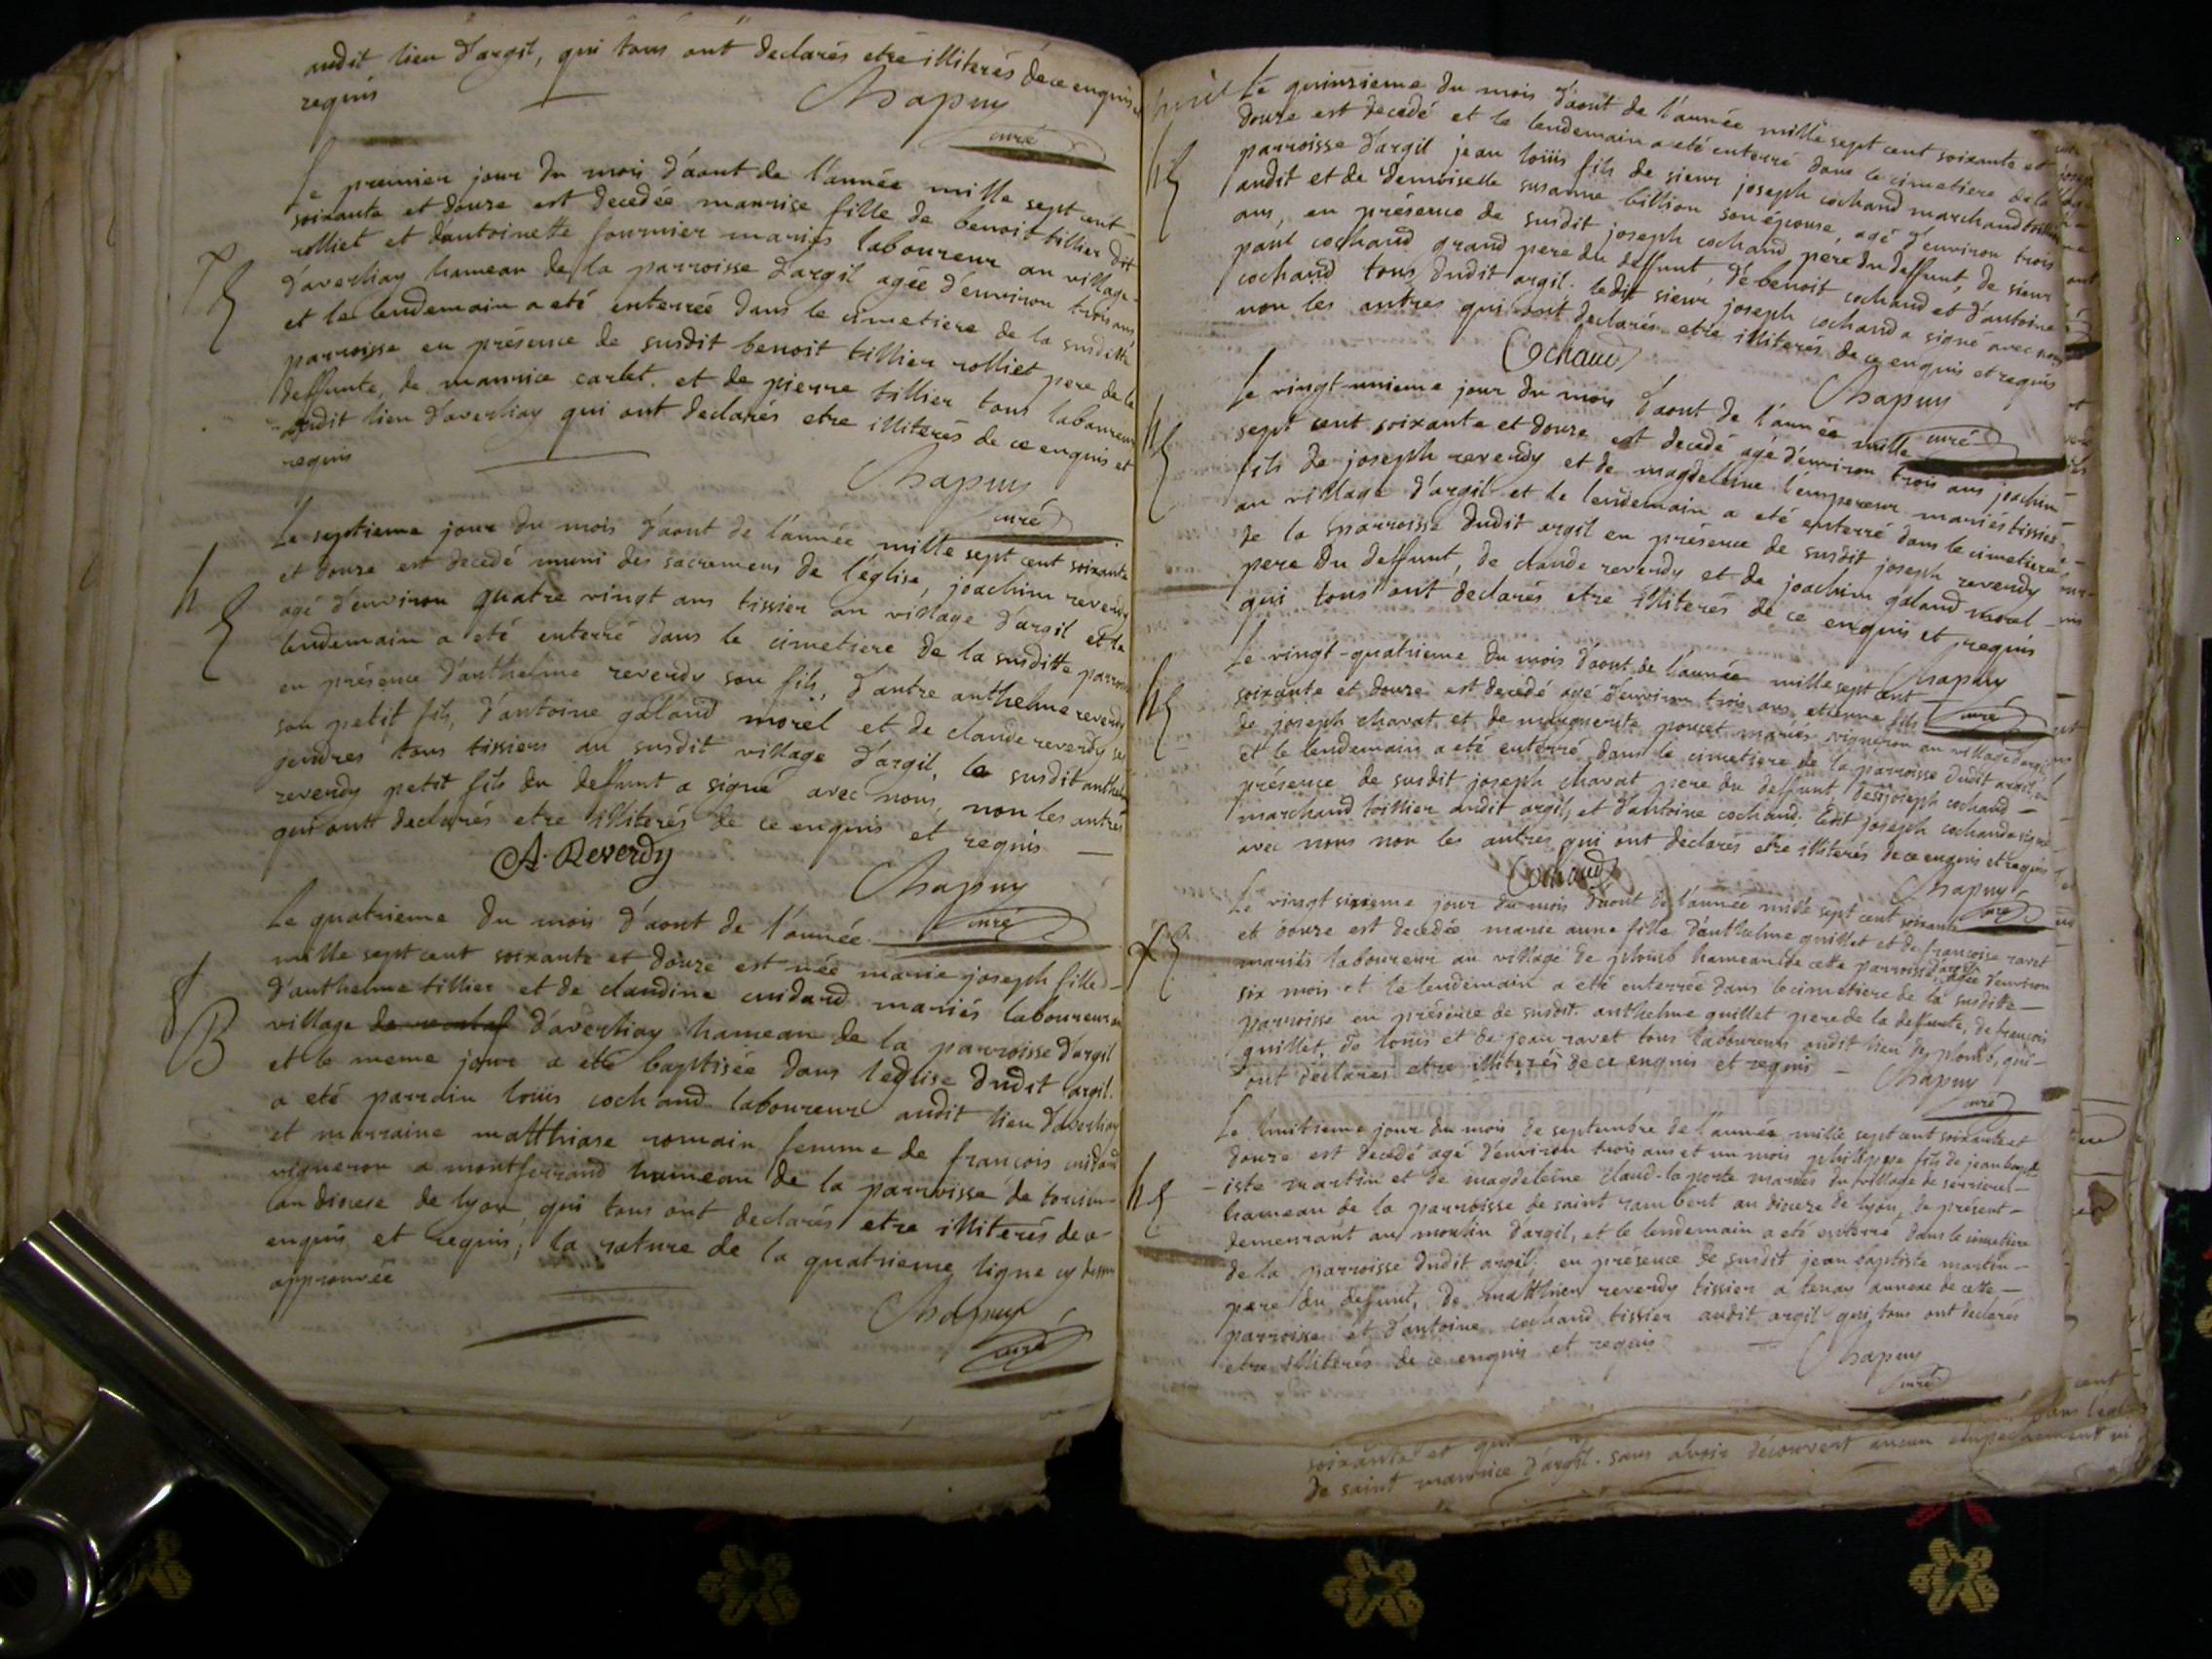 audit lieu d'argil, qui tous ont declarés etre illiterés de ce enquis et
requis
Chapuy
curé
Le premier jour du mois d'aout de l'année mille sept cent
soixante et douze est decedée maurise fille de benoit tillier dit
rolliet et d'antoinette fournier mariés laboureur au village
d'averliay hameau de la parroisse d'argil agée d'environ trois ans
et le lendemain a eté enterrée dans le cimetiere de la susditte
parroisse en présence de susdit benoit tillier rolliet pere de la
deffunte, de maurice carlet et de pierre tillier tous laboureurs
audit lieu d'averliay qui ont declarés etre illiterés de ce enquis et
requis
Chapuy
curé
Le septieme jour du mois d'aout de l'année mille sept cent soixante
et douze est decedé muni des sacremens de l'église, joachim reverdy
agé d'environ quatre vingt ans tissier au village d'argil et le
lendemain a eté enterré dans le cimetiere de la susditte parroisse
en présence d'anthelme reverdy son fils, d'autre anthelme reverdy
son petit fils, d'antoine galand morel et de claude reverdy ses
gendres tous tissiers au susdit village d'argil, le susdit anthelme
reverdy petit fils du deffunt a signé avec nous, non les autres
qui ont declarés etre illiterés de ce enquis et requis
A. Reverdy
Chapuy
curé
Le quatrieme du mois d'aout de l'année
mille sept cent soixante et douze est née marie joseph fille
d'anthelme tillier et de claudine cuidard mariés laboureur au
village d'averliay hameau de la parroisse d'argil
et le meme jour a eté baptisée dans l'eglise dudit argil.
B
a eté parrain loüis cochand laboureur audit lieu d'averliay
et marraine matthiase romain femme de françois cuidard
vigneron a montferrand hameau de la parroisse de torcieu
au diocese de lyon, qui tous ont declarés etre illiterés de ce
enquis et requis; la rature de la quatrieme ligne cy dessus
approuvée
Chapuy
curé
Le quinzieme du mois d'aout de l'année mille sept cent soixante et
douze est decedé et le lendemain a eté enterré dans le cimetiere de la
parroisse d'argil jean loüis fils de sieur joseph cochand marchand toillier
audit et de demoiselle susanne billion son épouse, agé d'environ trois
ans, en présence de susdit joseph cochand pere du deffunt, de sieur
paul cochand grand pere du deffunt, de benoit cochand et d'antoine
cochand tous dudit argil. ledit sieur joseph cochand a signé avec nous
non les autres qui ont declarés etre illiterés de ce enquis et requis
Cochand
Chapuy
curé
Le vingt-unieme jour du mois d'aout de l'année mille
sept cent soixante et douze est decedé agé d'environ trois ans joachim
fils de joseph reverdy et de magdeleine l'empereur mariés tissier
au village d'argil et le lendemain a eté enterré dans le cimetiere
de la parroisse dudit argil en présence de susdit joseph reverdy
pere du deffunt, de claude reverdy et de joachim galand morel
qui tous ont declarés etre illiterés de ce enquis et requis
Chapuy
curé
Le vingt-quatrieme du mois d'aout de l'année mille sept cent
soixante et douze est decedé agé d'environ trois ans etienne fils
de joseph chavat et de marguerite poncet mariés vigneron au village d'argil
et le lendemain a eté enterré dans le cimetiere de la parroisse dudit argil en
présence de susdit joseph chavat pere du deffunt de joseph cochand
marchand toillier audit argil, et d'antoine cochand. ledit joseph cochand a signé
avec nous non les autres qui ont declarés etre illiterés de ce enquis et requis
Cochand
Chapuy
curé
Le vingt sixieme jour du mois d'aout de l'année mille sept cent soixante
et douze est decedée marie anne fille d'anthelme guillet et de françoise ravet
mariés laboureur au village de plomb hameau de cette parroisse d'argil agée d'environ
six mois et le lendemain a eté enterrée dans le cimetiere de la susditte
parroisse en présence de susdit anthelme guillet pere de la deffunte, de françois
guillet, de louis et de jean ravet tous laboureurs audit lieu de plomb, qui
ont declarés etre illiterés de ce enquis et requis
Chapuy
curé
Le huitieme jour du mois de septembre de l'année mille sept cent soixante et
douze est decedé agé d'environ trois ans et un mois philippe fils de jean bapt
iste martin et de magdeleine claud-la porte mariés du village de serrieres
hameau de la parroisse de saint rambert au diocese de lyon, de présent
demeurant au moulin d'argil, et le lendemain a eté enterré dans le cimetiere
de la parroisse dudit argil en présence de susdit jean baptiste martin
pere du defunt, de matthieu reverdy tissier a tenay annexe de cette
parroisse et d'antoine cochand tissier audit argil qui tous ont declarés
etre illiterés de ce enquis et requis
Chapuy
curé
cent
soixante et dans l'egl
de saint maurice d'argil. sans avoir découvert aucun empechement ni